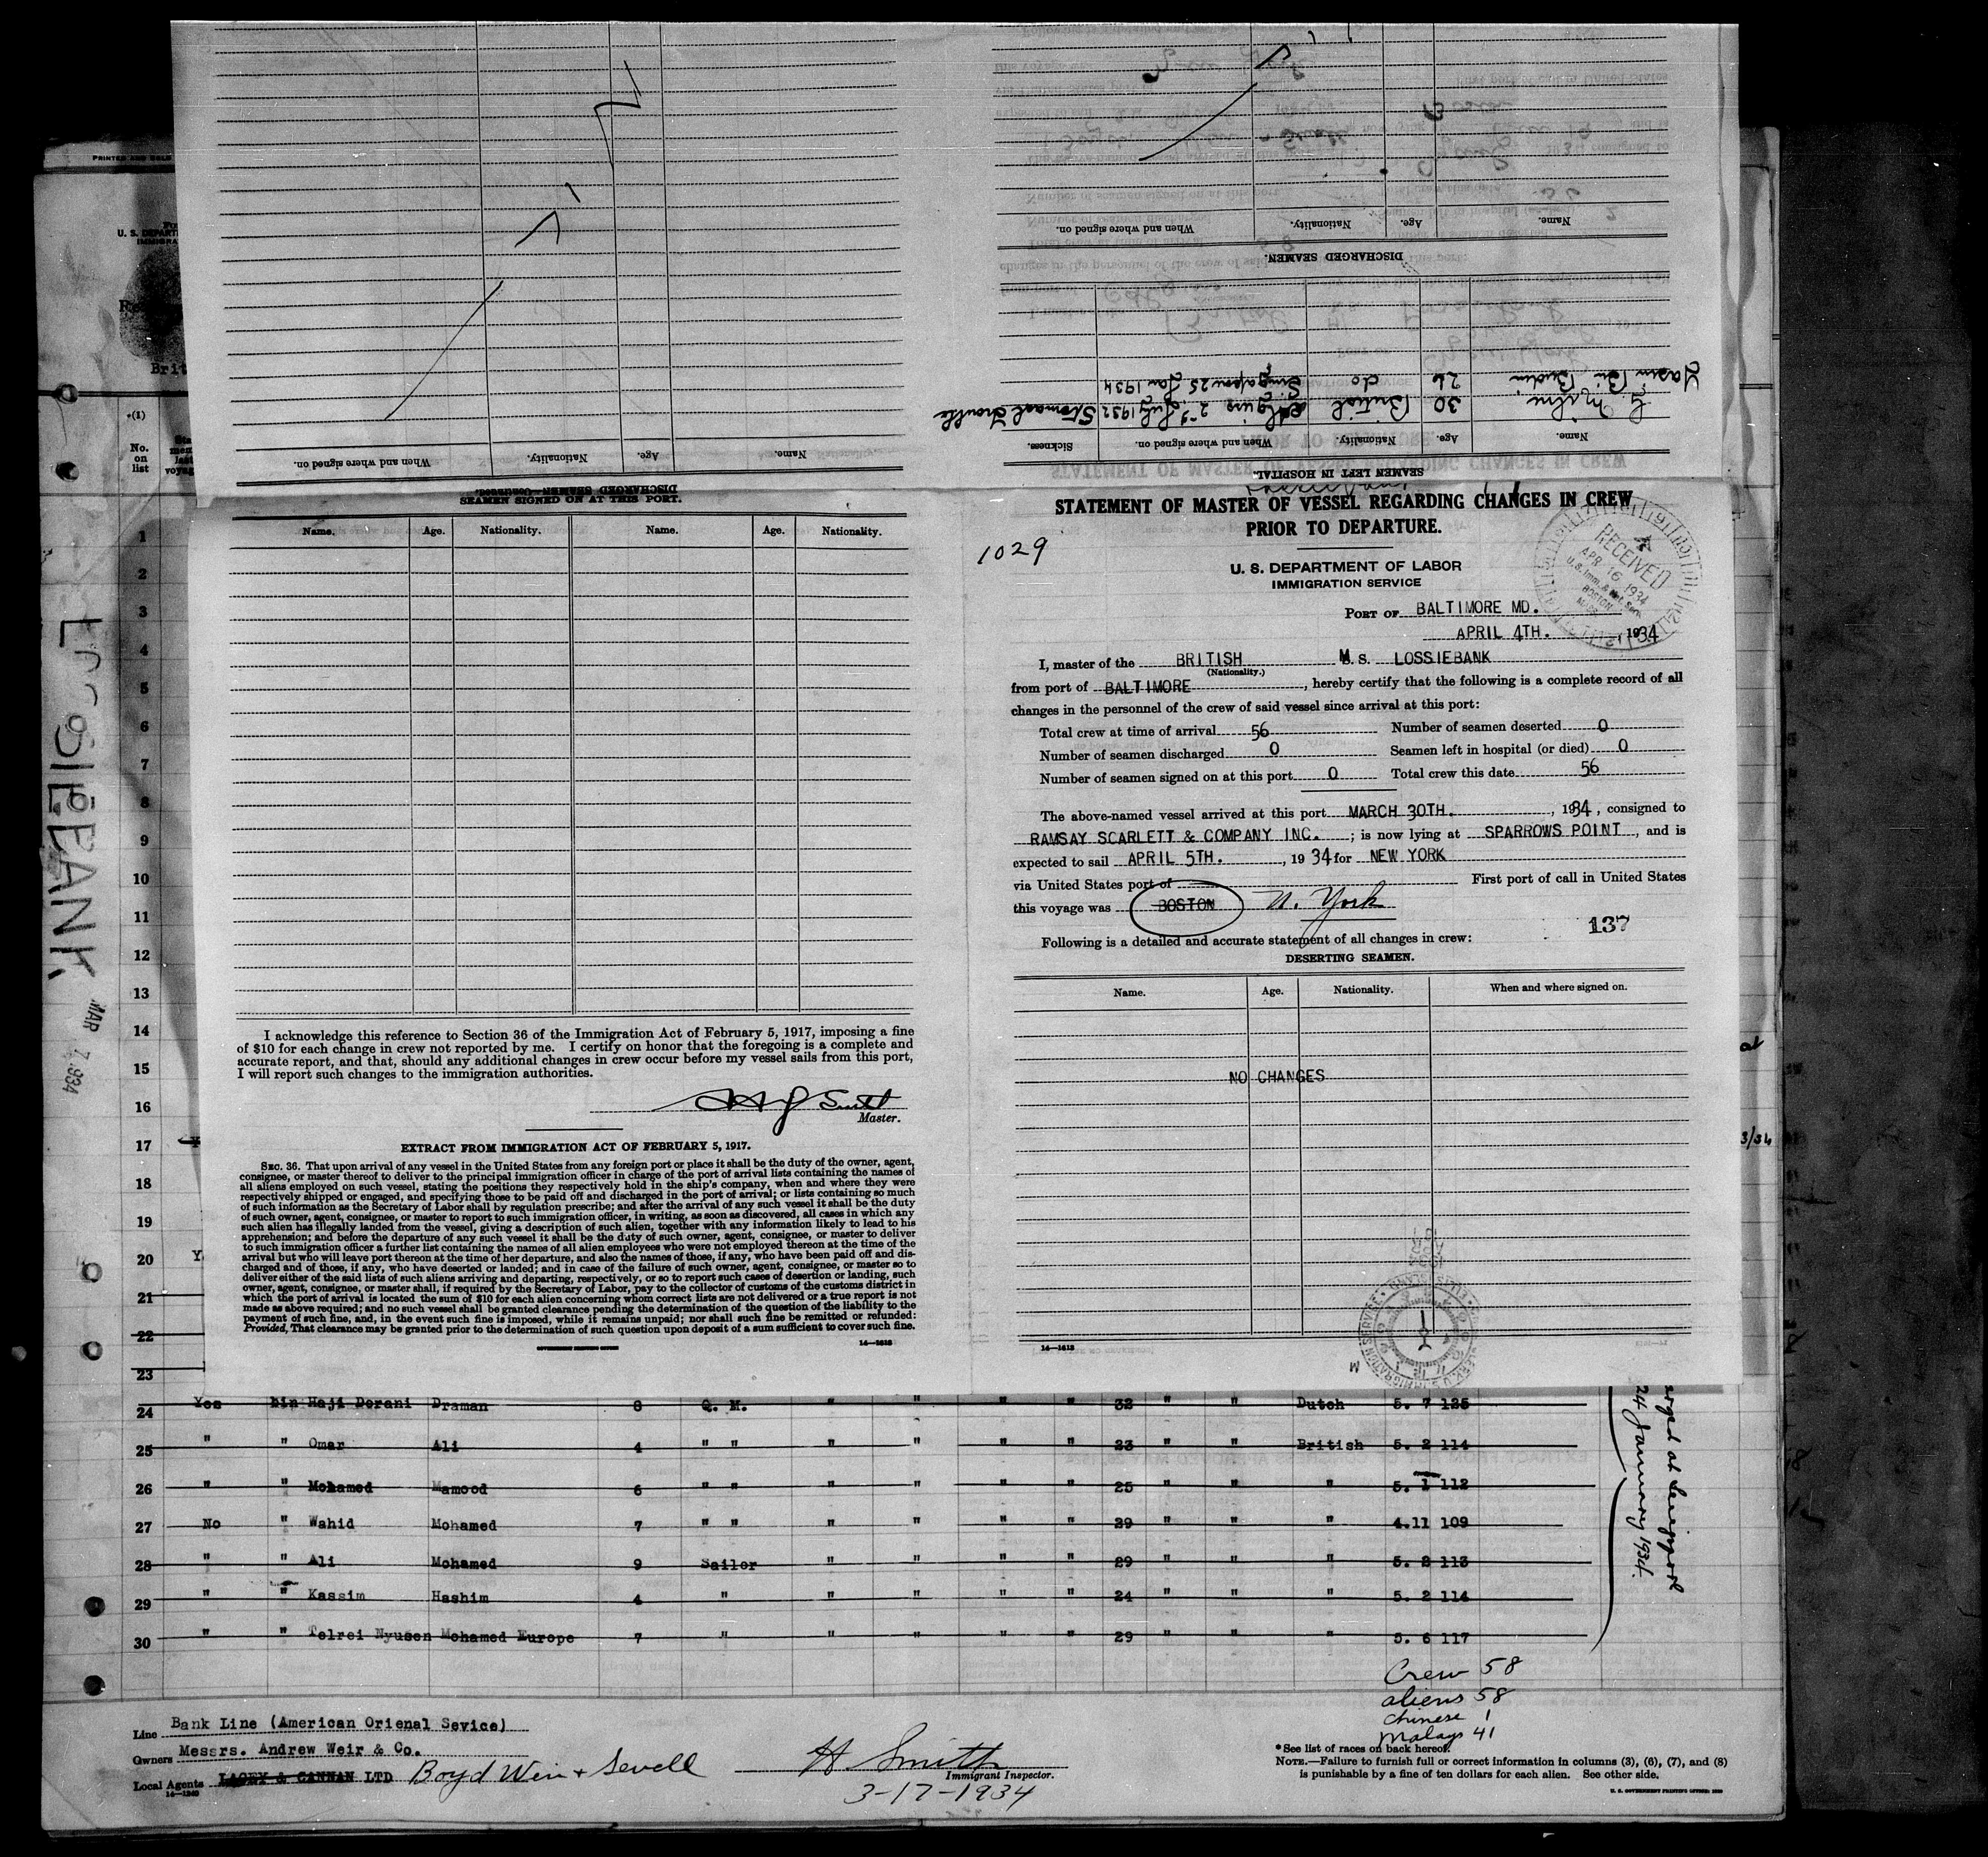 Name. Age. Nationality. When and where signed on.
DISCHARGED SEAMEN—Continued.
Name. Age. Nationality. When and where signed on.
DISCHARGED SEAMEN.
Yasin Bin Budin 26 do Singapore 25 Jan 1934
G. Milne 30 British 2nd July 1932 Stomach Trouble
Name. Age. Nationality. When and where signed on. Sickness.
SEAMEN LEFT IN HOSPITAL
SEAMEN SIGNED ON AT THIS PORT.
Name. Age. Nationality. Name. Age. Nationality.
I acknowledge this reference to Section 36 of the Immigration Act of February 5, 1917, imposing a fine
of $10 for each change in crew not reported by me. I certify on honor that the foregoing is a complete and
accurate report, and that, should any additional changes in crew occur before my vessel sails from this port,
I will report such changes to the immigration authorities.
Smith
Master.
EXTRACT FROM IMMIGRATION ACT OF FEBRUARY 5, 1917.
SEC. 36. That upon arrival of any vessel in the United States from any foreign port or place it shall be the duty of the owner, agent,
consignee, or master thereof to deliver to the principal immigration officer in charge of the port of arrival lists containing the names of
all aliens employed on such vessel, stating the positions they respectively hold in the ship's company, when and where they were
respectively shipped or engaged, and specifying those to be paid off and discharged in the port of arrival; or lists containing so much
of such information as the Secretary of Labor shall by regulation prescribe; and after the arrival of any such vessel it shall be the duty
of such owner, agent, consignee, or master to report to such immigration officer, in writing, as soon as discovered, all cases in which any
such alien has illegally landed from the vessel, giving a description of such alien, together with any information likely to lead to his
apprehension; and before the departure of any such vessel it shall be the duty of such owner, agent, consignee, or master to deliver
to such immigration officer a further list containing the names of all alien employees who were not employed thereon at the time of the
arrival but who will leave port thereon at the time of her departure, and also the names of those, if any, who have been paid off and dis-
charged and of those, if any, who have deserted or landed; and in case of the failure of such owner, agent, consignee, or master so to
deliver either of the said lists of such aliens arriving and departing, respectively, or so to report such cases of desertion or landing, such
owner, agent, consignee, or master shall, if required by the Secretary of Labor, pay to the collector of customs of the customs district in
which the port of arrival is located the sum of $10 for each alien concerning whom correct lists are not delivered or a true report is not
made as above required; and no such vessel shall be granted clearance pending the determination of the question of the liability to the
payment of such fine, and, in the event such fine is imposed, while it remains unpaid; nor shall such fine be remitted or refunded:
Provided, That clearance may be granted prior to the determination of such question upon deposit of a sum sufficient to cover such fine.
GOVERNMENT PRINTING OFFICE 14—1618
STATEMENT OF MASTER OF VESSEL REGARDING CHANGES IN CREW
PRIOR TO DEPARTURE.
1029
U. S. DEPARTMENT OF LABOR
IMMIGRATION SERVICE
RECEIVED
APR 16 1934
BOSTON
PORT OF BALTIMORE MD.
APRIL 4TH. , 1934
I, master of the BRITISH M.S. LOSSIEBANK
(Nationality.)
from port of BALTIMORE , hereby certify that the following is a complete record of all
changes in the personnel of the crew of said vessel since arrival at this port:
Total crew at time of arrival 56 Number of seamen deserted 0
Number of seamen discharged 0 Seamen left in hospital (or died) 0
Number of seamen signed on at this port 0 Total crew this date 56
The above-named vessel arrived at this port MARCH 30TH. , 1934, consigned to
RAMSAY SCARLETT & COMPANY INC. ; is now lying at SPARROWS POINT , and is
expected to sail APRIL 5TH. , 1934 for NEW YORK
via United States port of First port of call in United States
this voyage was BOSTON N. York
137
Following is a detailed and accurate statement of all changes in crew:
DESERTING SEAMEN.
Name. Age. Nationality. When and where signed on.
NO CHANGES
14—1618
LOSSIEBANK
MAR 7 1934
PRINTED AND SOLD
U. S. DEPART
IMMIGRA
Brit
(1)
No.
on
list
1
2
3
4
5
6
7
8
9
10
11
12
13
14
15
16
17
18
19
20
21
22
23
24 Yes bin Haji Dorani Draman 8 Q. M. " " " " 32 " " Dutch 5. 7 125
25 " " Omar Ali 4 " " " " " " 23 " " British 5. 2 114
26 " " Mohamed Mamood 6 " " " " " " 25 " " " 5. 1 112
27 No " Wahid Mohamed 7 " " " " " " 29 " " " 4.11 109
28 " " Ali Mohamed 9 Sailor " " " " 29 " " " 5. 2 113
29 " " Kassim Hashim 4 " " " " " 24 " " " 5. 2 114
30 " " Telrei Nyusen Mohamed Europe 7 " " " " " 29 " " " 5. 6 117
24 January 1934.
3/34
Crew 58
aliens 58
chinese 1
Malays 41
Line Bank Line (American Orienal Sevice)
Owners Messrs. Andrew Weir & Co.
Local Agents LACEY & CANNAN LTD Boyd Weir & Sevell
14—1240
H Smith
Immigrant Inspector.
3-17-1934
*See list of races on back hereof.
NOTE.—Failure to furnish full or correct information in columns (3), (6), (7), and (8)
is punishable by a fine of ten dollars for each alien. See other side.